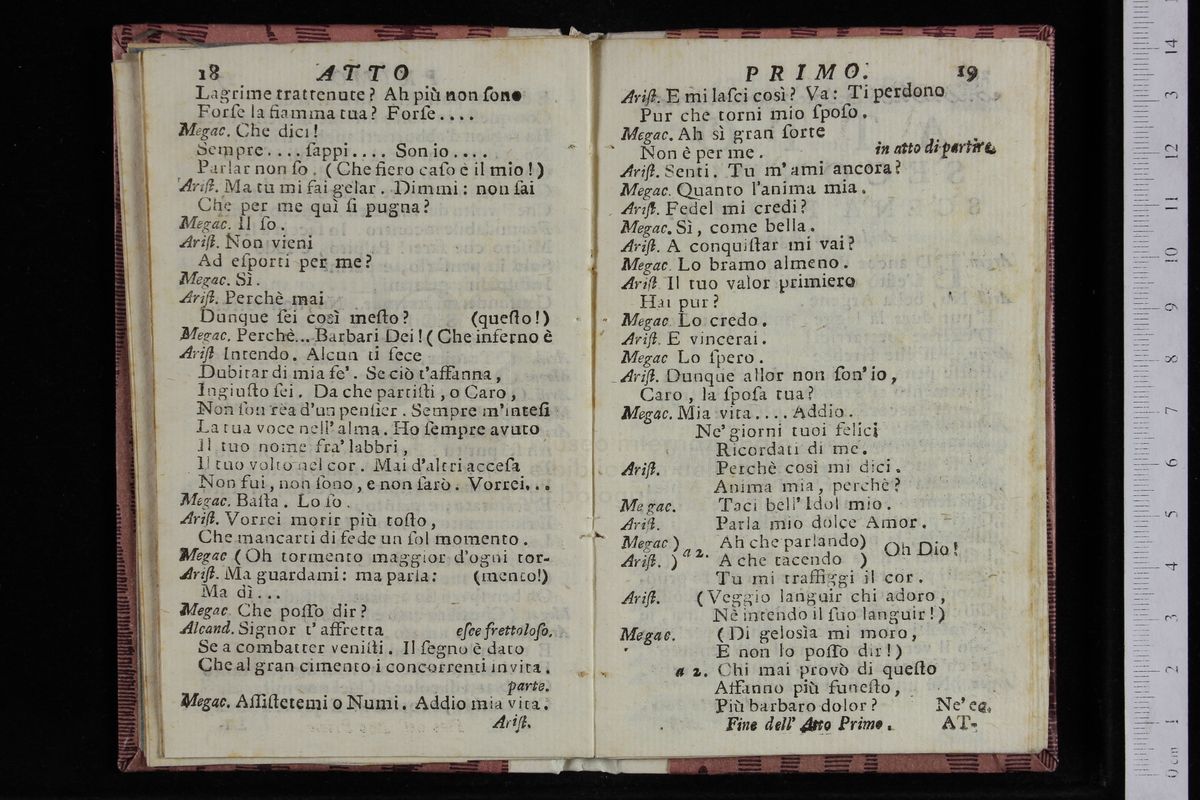 18 ATTO
Lagrime trattenute? Ah più non ſono
Forſe la fiamma tua? Forſe....
Megac. Che dici!
Sempre.... ſappi.... Son io....
Parlar non ſo. (Che fiero caſo è il mio!)
Ariſt. Ma tu mi fai gelar. Dimmi: non ſai
Che per me quì ſi pugna?
Megac. Il ſo.
Ariſt. Non vieni
Ad eſporti per me?
Megac. Sì.
Ariſt. Perchè mai
Dunque ſei così meſto? (queſto!)
Megac. Perchè... Barbari Dei! (Che inferno è
Ariſt Intendo. Alcun ti fece
Dubitar di mia fe'. Se ciò t'affanna,
Ingiuſto ſei. Da che partiſti, o Caro,
Non ſon rea d'un penſier. Sempre m'inteſi
La tua voce nell'alma. Ho ſempre avuto
Il tuo nome fra' labbri,
Il tuo volto nel cor. Mai d'altri acceſa
Non fui, non ſono, e non ſarò. Vorrei...
Megac. Baſta. Lo ſo.
Ariſt. Vorrei morir più toſto,
Che mancarti di fede un ſol momento.
Megac (Oh tormento maggior d'ogni tor-
Ariſt. Ma guardami: ma parla: (mento!)
Ma dì...
Megac. Che poſſo dir?
Alcand. Signor t'affretta eſce frettoloſo.
Se a combatter veniſti. Il ſegno è dato
Che al gran cimento i concorrenti invita.
parte.
Megac. Aſſiſtetemi o Numi. Addio mia vita.
Ariſt.
PRIMO. 19
Ariſt. E mi laſci così? Va: Ti perdono
Pur che torni mio ſpoſo.
Megac. Ah sì gran ſorte
Non è per me. in atto di partire.
Ariſt. Senti. Tu m'ami ancora?
Megac. Quanto l'anima mia.
Ariſt. Fedel mi credi?
Megac. Sì, come bella.
Ariſt. A conquiſtar mi vai?
Megac Lo bramo almeno.
Ariſt. Il tuo valor primiero
Hai pur?
Megac Lo credo.
Ariſt. E vincerai.
Megac Lo ſpero.
Ariſt. Dunque allor non ſon'io,
Caro, la ſpoſa tua?
Megac. Mia vita.... Addio.
Ne' giorni tuoi felici
Ricordati di me.
Ariſt. Perchè così mi dici.
Anima mia, perchè?
Megac. Taci bell'Idol mio.
Ariſt. Parla mio dolce Amor.
Megac ) a 2. Ah che parlando) Oh Dio!
Ariſt. ) A che tacendo )
Tu mi traffiggi il cor.
Ariſt. (Veggio languir chi adoro,
Nè intendo il ſuo languir!)
Megac. (Di gelosìa mi moro,
E non lo poſſo dir!)
a 2. Chi mai provò di queſto
Affanno più funeſto,
Più barbaro dolor? Ne' ec.
Fine dell' Atto Primo. AT-
0 cm 1 2 3 4 5 6 7 8 9 10 11 12 13 14